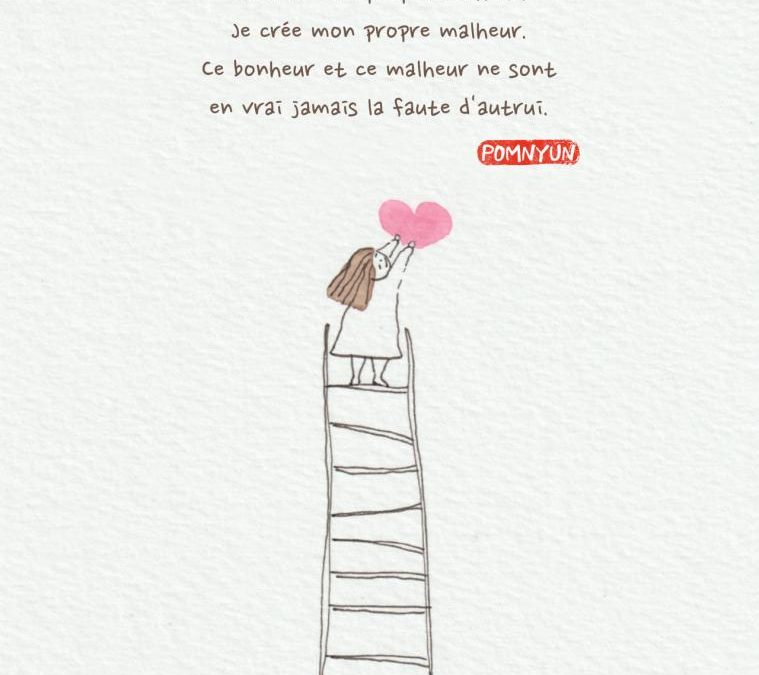 Je crée mon propre malheur.
Ce bonheur et ce malheur ne sont
en vrai jamais la faute d'autrui.
POMNYUN